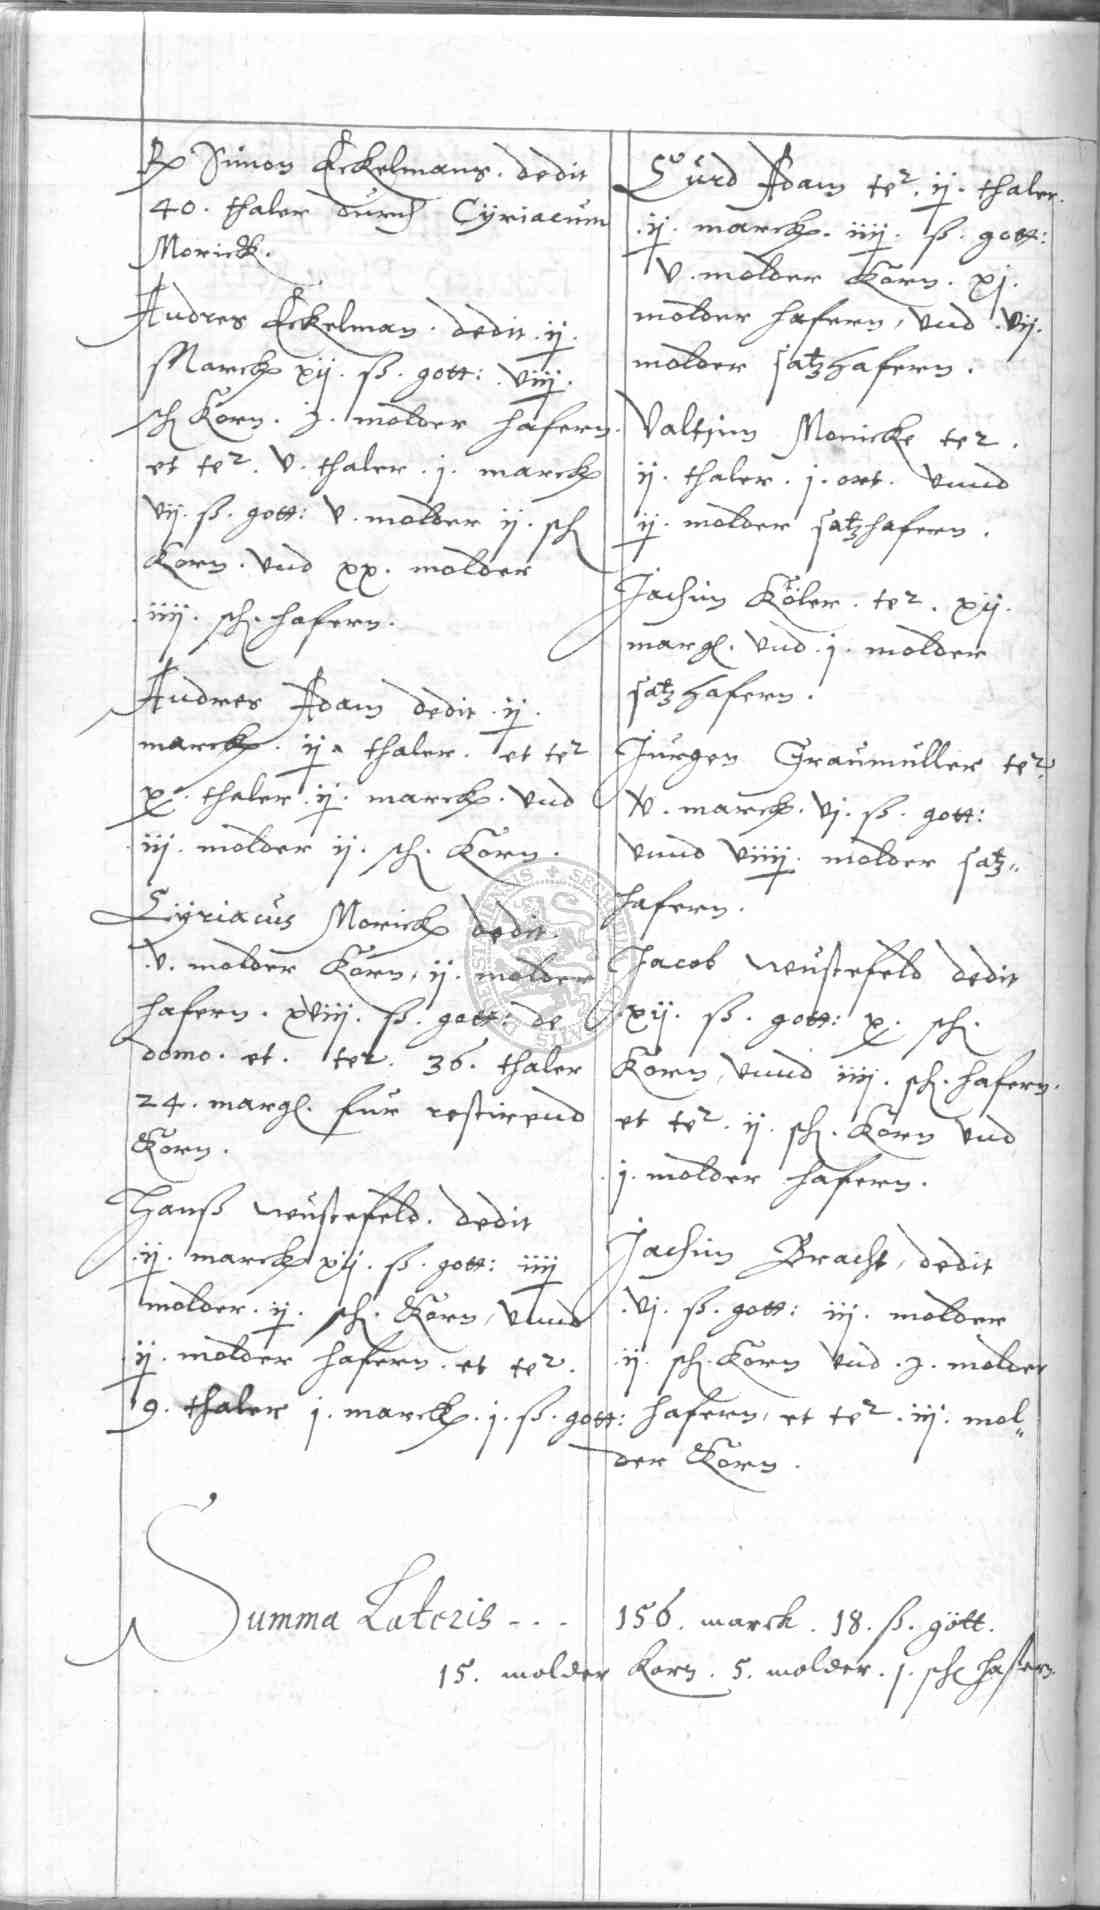 Rp Simon Eckelmans. dedit
40. thaler durch Cyriacum
Morick.
Andres Eckelman. dedit. ij.
Marck xij. ß. gott: viij.
sch Korn. j. molder hafern.
et ter. v. thaler. j. marck
vij. ß. gott: v. molder ij. sch
Korn. vnd xx. molder
iiij. sch. hafern.
Andres Adam dedit. ij.
marck. ij. thaler. et ter
x. thaler. ij. marck. vnd
iij. molder ij. sch. Korn.
Cyriacus Morick dedit.
v. molder Korn, ij. molder
hafern. xviij. ß. gott: de
domo. et. ter. 36. thaler
24. margl. für restirend
Korn.
Hanß wüstefeld. dedit
ij. marck xij. ß. gott: iiij
molder. ij. sch. Korn, vnnd
ij. molder hafern. et ter.
9. thaler j. marck. j. ß. gott:
Curd Adam ter. ij. thaler.
ij. marck. iiij. ß. gott:
v. molder Korn. xj.
molder hafern, vnd vij.
molder satzhafern.
Valtjnn Moricke ter.
ij. thaler. j. ort. vnnd
ij. molder satzhafern.
Jachim Köler. ter. xij.
margl. vnd. j. molder
satzhafern.
Jürgen Graumüller ter.
v. marck. vj. ß. gott:
vnnd viiij. molder satz„
hafern.
Jacob wüstefeld dedit
xij. ß. gott: x. sch.
Korn, vnnd iiij. sch. hafern.
et ter. ij. sch. Korn vnd
j. molder hafern.
Jachim Bracht, dedit
vj. ß. gott: iij. molder
ij. sch. Korn vnd. j. molder
hafern, et ter. iij. mol„
der Korn.
Summa Lateris - - - 156. marck. 18. ß. gött.
15. molder Korn. 5. molder. j. sch hafern.